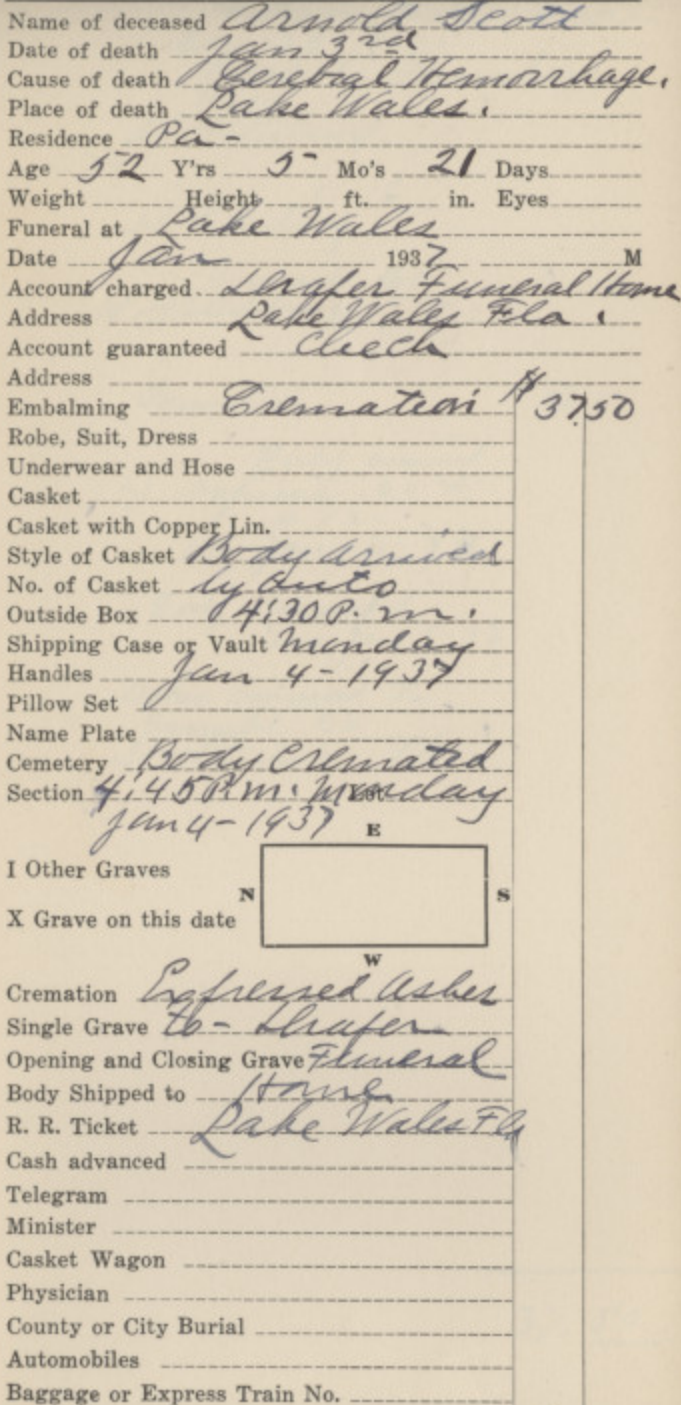 Name of deceased Arnold Scott
Date of death Jan 3rd
Cause of death Cerebral Hemorrhage.
Place of death Lake Wales.
Residence Pa-
Age 52 Y'rs 5 Mo's 21 Days
Weight Height ft. in. Eyes
Funeral at Lake Wales
Date Jan 1937 M
Account charged Funeral Home
Address Lake Wales Fla.
Account guaranteed Check
Address
Embalming Cremation $ 37.50
Robe, Suit, Dress
Underwear and Hose
Casket
Casket with Copper Lin.
Style of Casket Body arrived
No. of Casket by auto
Outside Box 4:30 P.m.
Shipping Case or Vault Monday
Handles Jan 4-1937
Pillow Set
Name Plate
Cemetery Body Cremated
Section 4:45 P.m. Lot Monday
Jan 4-1937
E
I Other Graves
N S
X Grave on this date
W
Cremation Expressed ashes
Single Grave to-
Opening and Closing Grave Funeral
Body Shipped to Home
R. R. Ticket Lake Wales Fla
Cash advanced
Telegram
Minister
Casket Wagon
Physician
County or City Burial
Automobiles
Baggage or Express Train No.